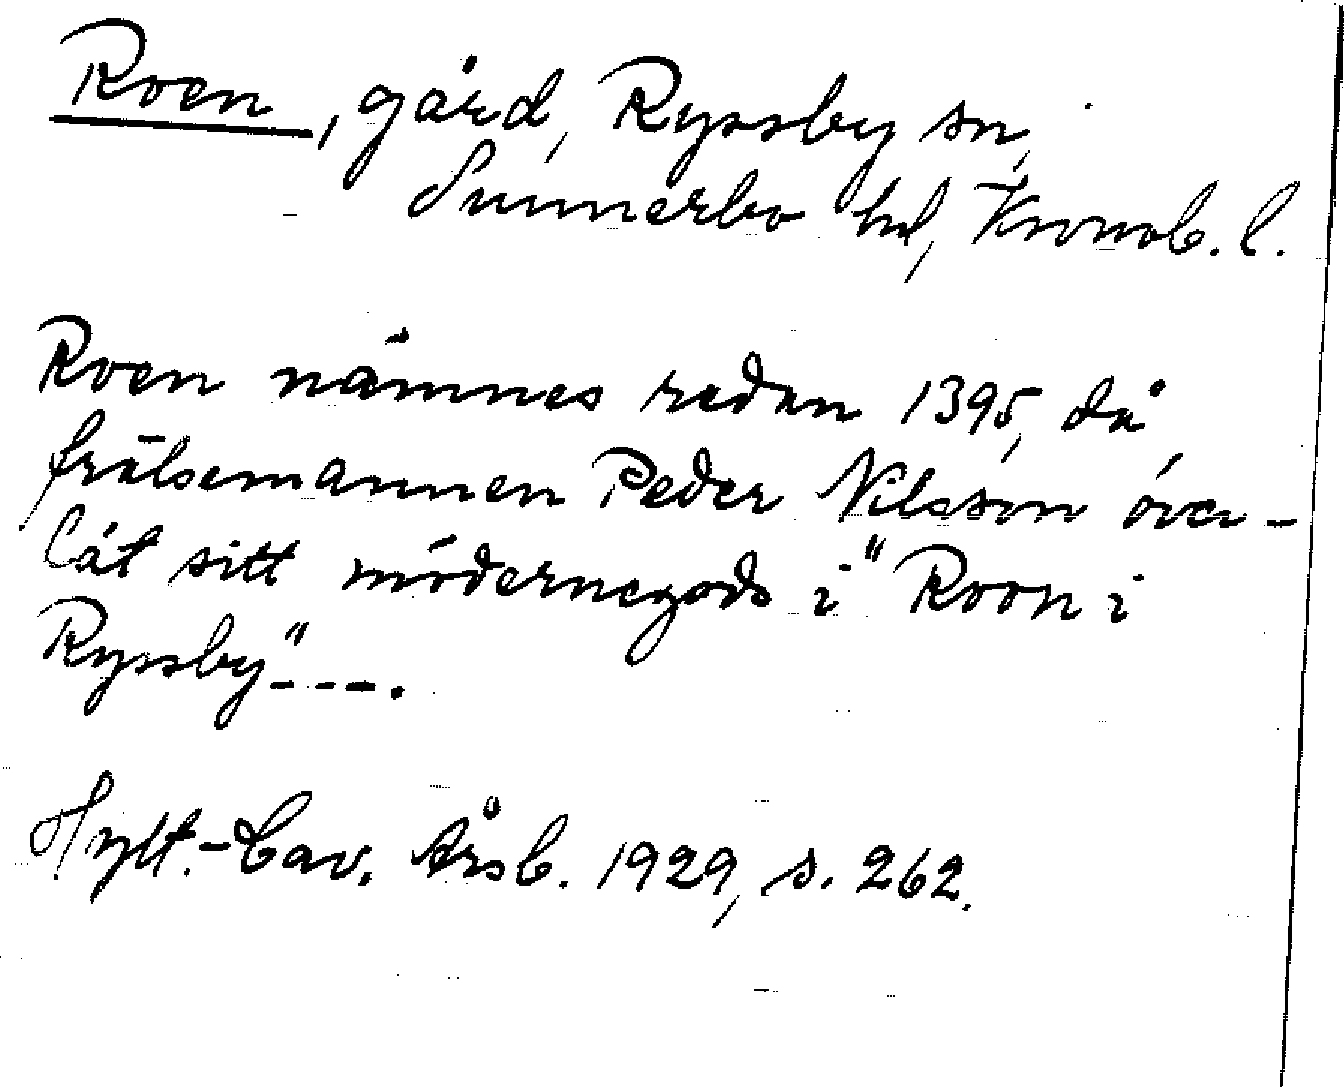 Roen, gård, Ryssby sn,
Sunnerbo hd, Kronob. l.
Roen nämnes redan 1395, då
frälsemannen Peder Nilsson över-
lät sitt mödernegods i "Roon i
Ryssby"---.
Hylt.-Cav. Årsb. 1929, s. 262.